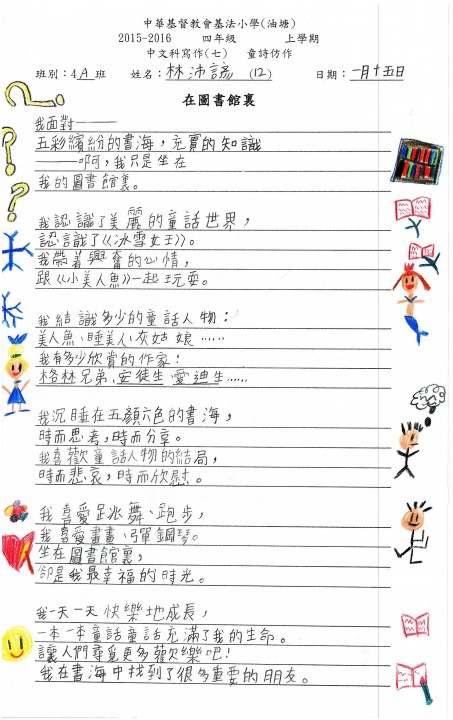 中華基督教會基法小學(油塘)
2015-2016 四年級 上學期
中文科寫作(七) 童詩仿作
班別：4A班 姓名：林沛諺 (12) 日期：一月十五日
在圖書館裏
我面對——
五彩繽紛的書海，充實的知識
——啊，我只是坐在
我的圖書館裏。
我認識了美麗的童話世界，
認識了《冰雪女王》。
我帶着興奮的心情，
跟《小美人魚》一起玩耍。
我結識多少的童話人物：
美人魚、睡美人、灰姑娘……
我有多少欣賞的作家：
格林兄弟、安徒生、愛迪生……
我沉睡在五顏六色的書海，
時而思考，時而分享。
我喜歡童話人物的結局，
時而悲哀，時而欣慰。
我喜愛跳舞、跑步，
我喜愛畫畫、彈鋼琴。
坐在圖書館裏，
卻是我最幸福的時光。
我一天一天快樂地成長，
一本一本童話童話充滿了我的生命。
讓人們尋覓更多歡樂吧！
我在書海中找到了很多重要的朋友。